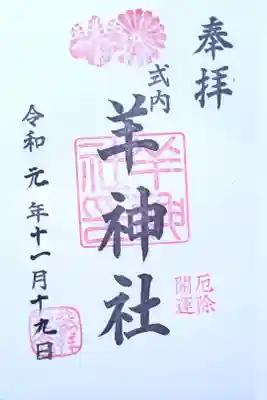 奉拝
式内
羊神社
厄除
開運
令和元年十一月十九日